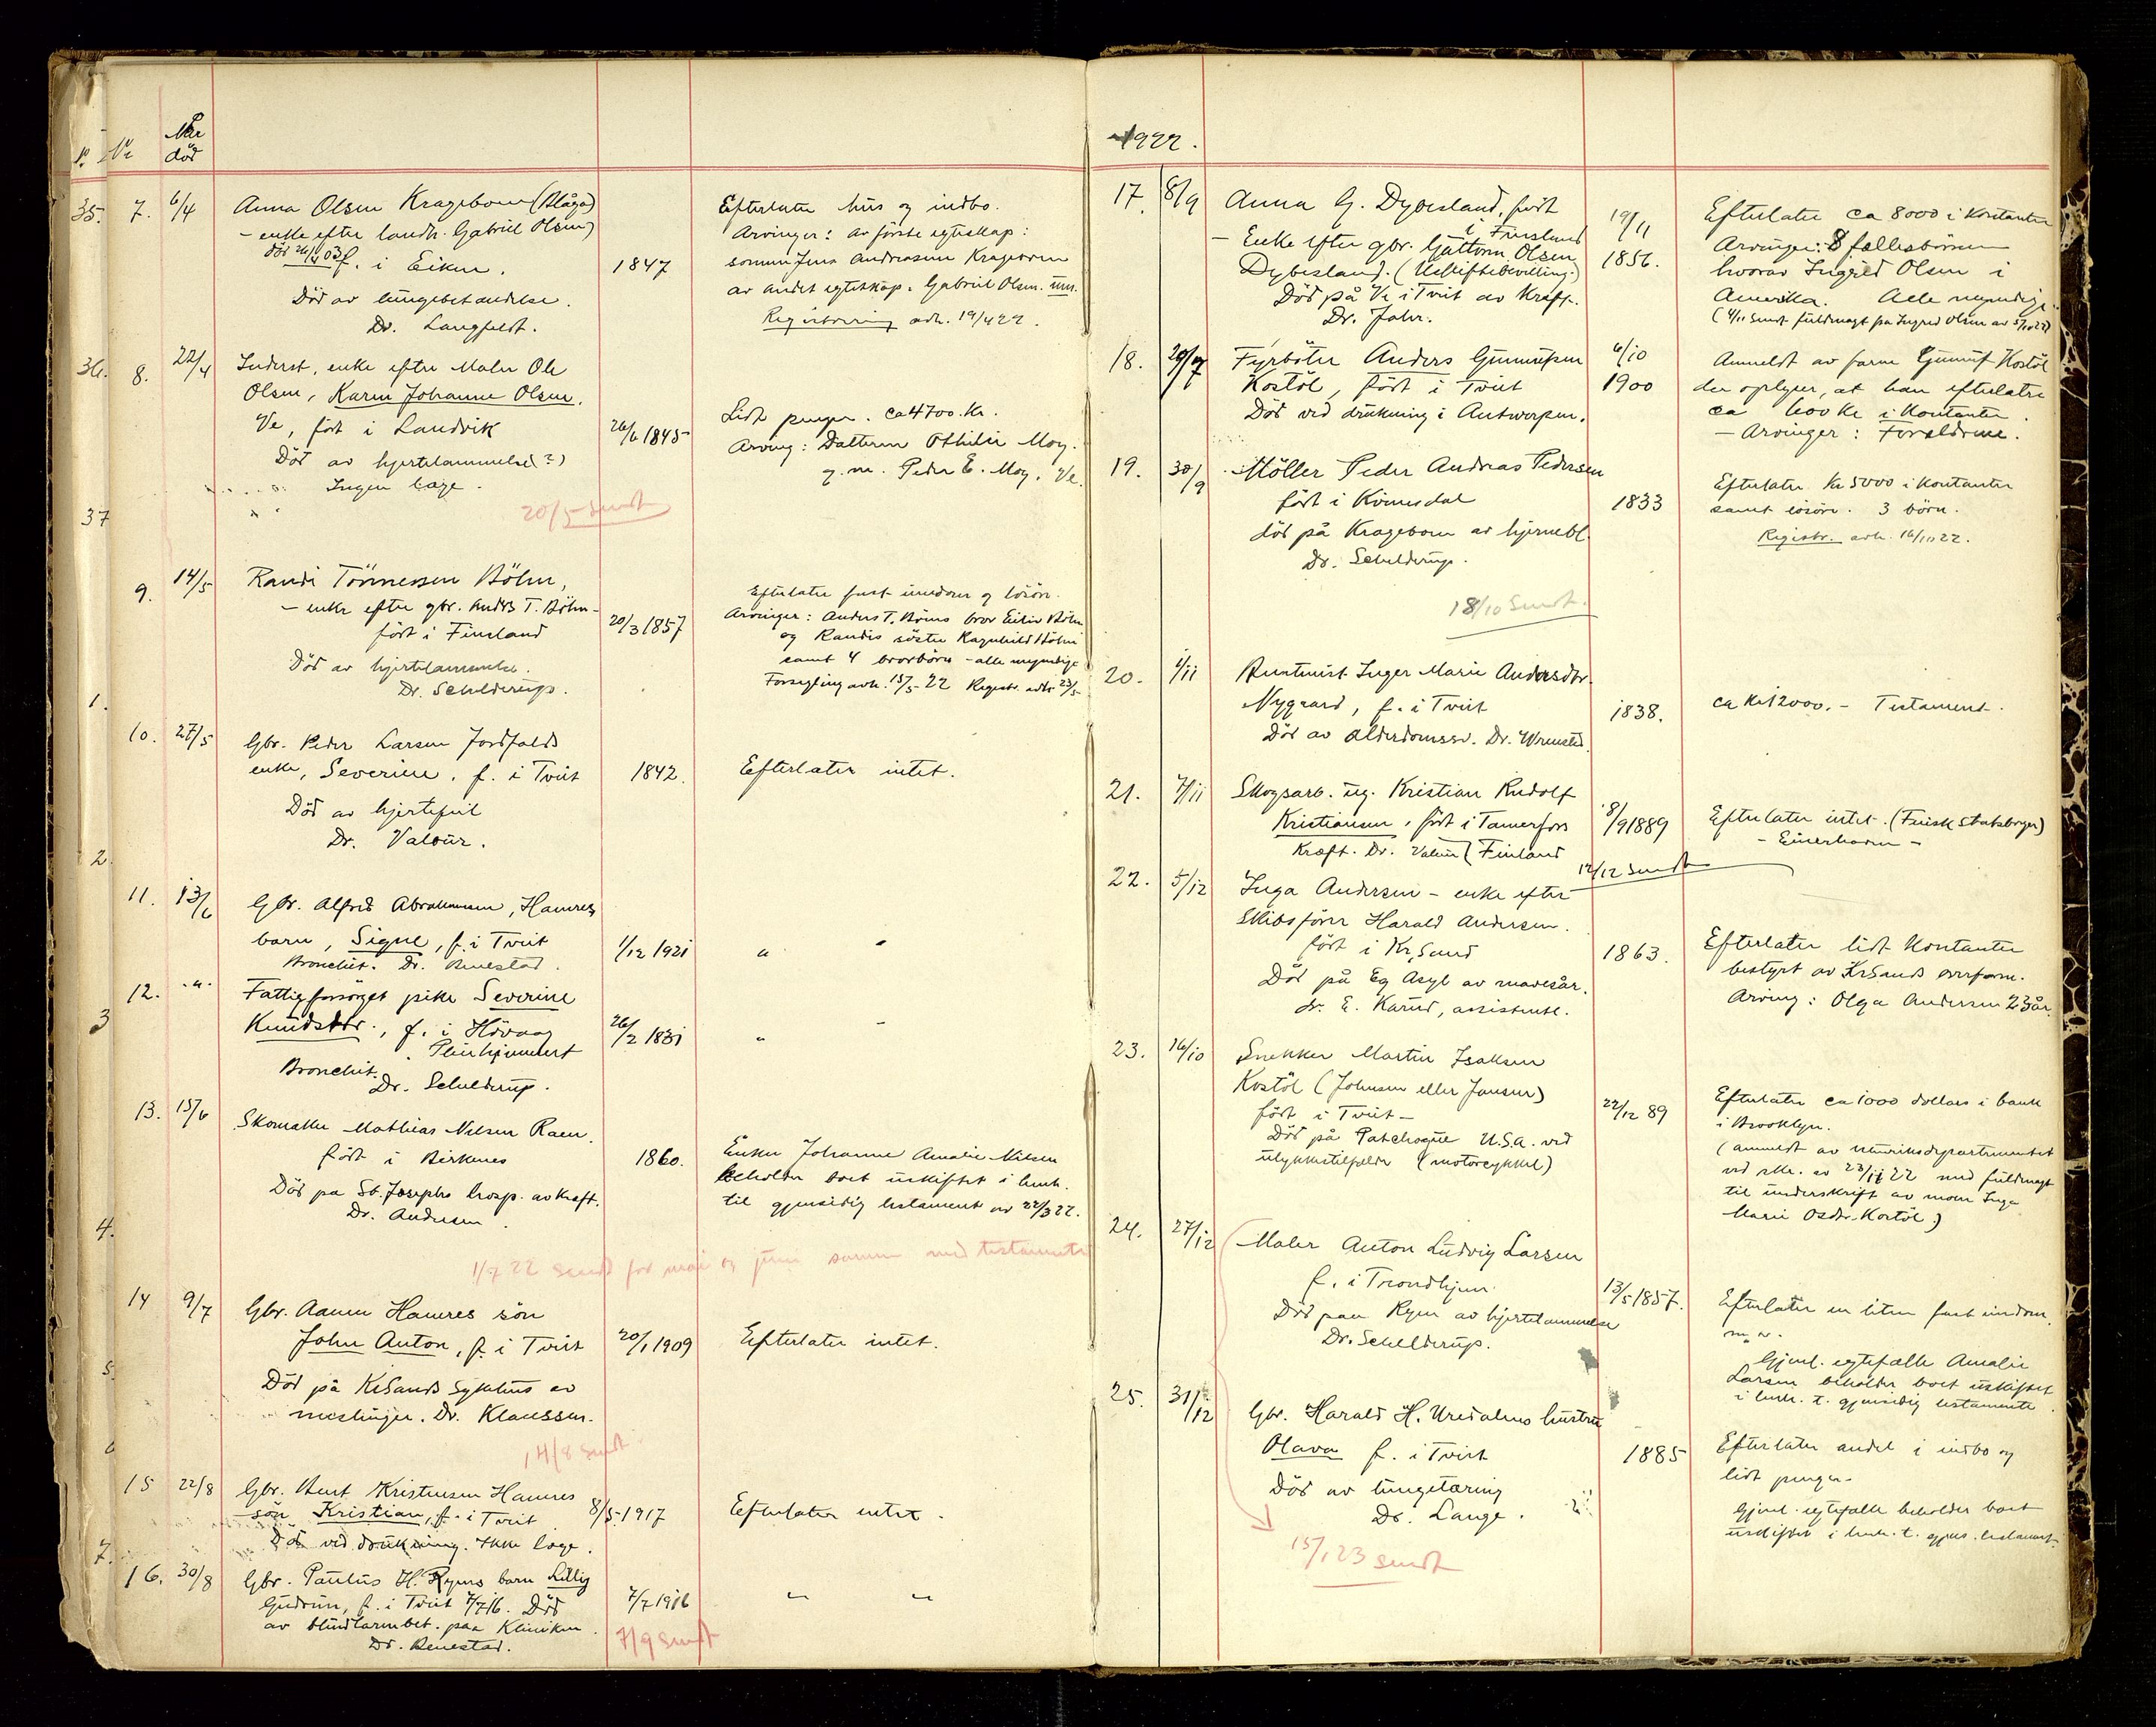 Nr
Når
död
35.
7.
6/4
Anna Olsen Krageboen (Blåga)
- enke efter landh. Gabriel Olsen)
död 26/4 03 f. i Eiken.
1847
Död av lungebetændelse.
Dr. Langfeldt.
Efterlater hus og indbo.
Arvinger: Av første egteskap:
sønnen Jens Andreassen Krageboen
av andet egteskap: Gabriel Olsen. um.
Registrering avh. 19/4 22.
36.
8.
22/4
Inderst, enke efter Maler Ole
Olsen, Karen Johanne Olsen,
Ve, født i Landvik
26/6 1845
Död av hjertelammelse(?)
Ingen læge.
Lidt penger. ca 4700 kr.
Arving: Datteren Othilie Moy.
g. m. Peder E. Moy, Ve.
20/5 sendt
37
9.
14/5
Randi Tönnessen Böhn,
- enke efter gbr. Anders T. Böhn -
född i Finsland
20/3 1857
Död av hjertelammelse.
Dr. Schelderup.
Efterlater fast eiendom og lösöre.
Arvinger: Anders T. Böhns bror Eilin Böhn
og Randis söster Ragnhild Böhn
samt 4 brorbörn - alle myndige
Forsegling avh. 15/5 22 Registr. avh. 23/5
1.
10.
27/5
Gbr. Peder Larsen Jordfalds
enke, Severine, f. i Tveit
1842.
Efterlater intet.
Död av hjertefeil
Dr. Valeur.
2.
11.
13/6
Gbr. Alfred Abrahamsen, Hamres
barn, Signe, f. i Tveit
1/12 1921
" "
Bronchit. Dr. Benestad.
12.
- " -
Fattigforsörget pike Severine
Knudsdtr., f. i Hövaag
26/2 1831
" -
Pleiehjemmet
Bronchit.
Dr. Schelderup.
3
13.
15/6
Skomaker Mathias Nilsen Raen,
född i Birkenes
1860.
Död paa St. Josephs hosp. av kræft.
Dr. Andersen.
Enken Johanne Amalie Nilsen
beholder boet uskiftet i henh.
til gjensidig testament av 22/3 22.
4.
1/7 22 sendt for mai og juni sammen med testamentet
14
9/7
Gbr. Aanen Hamres sön
John Anton, f. i Tveit
20/1 1909
Efterlater intet.
Död på KrSands sykehus av
meslinger. Dr. Klaussen.
5.
14/8 sendt
6
15
22/8
Gbr. Bent Kristensen Hamres
sön Kristian, f. i Tveit
8/5 1917
Efterlater intet.
Död ved drukning. Ikke læge.
7.
16.
30/8
Gbr. Paulus H. Ryens barn Lillij
Gudrun, f. i Tveit 7/7 16. Död
7/7 1916
" "
av blindtarmbet. paa Kliniken.
Dr. Benestad.
7/9 sendt
1922.
17.
8/9
Anna G. Dybesland, født
i Finsland
19/11
1856.
- Enke efter gbr. Guttorm Olsen
Dybesland. (Uskiftebevilling.)
Död på Ve i Tveit av Kræft.
Dr. Jahr.
Efterlater ca 8000 i Kontanter
Arvinger: 8 fællesbörn
hvorav Ingrid Olsen i
Amerika. Alle myndige.
(4/11 sendt fuldmagt fra Ingrid Olsen av 5/10 22)
18.
29/7
Fyrböter Anders Gunnufsen
Kostöl, född i Tveit
6/10
1900
Död ved drukning i Antwerpen.
Anmeldt av faren Gunnuf Kostöl
der oplyser, at han efterlater
ca 600 kr i Kontanter.
- Arvinger: Forældrene.
19.
30/9
Möller Peder Andreas Pedersen
född i Kvinesdal
1833
död på Krageboen av hjernebl.
Dr. Schelderup.
Efterlater Kr 5000 i kontanter
samt lösöre. 3 börn.
Registr. avh. 16/11 22.
18/10 sendt.
20.
1/11
Rentenist Inger Marie Andersdtr.
Nygaard, f. i Tveit
1838.
Död av Alderdomssv. Dr. Wrensted.
ca Kr 12000. - Testament.
21.
7/11
Skogsarb. ug. Kristian Rudolf
Kristiansen, född i Tamerfors
8/9 1889
Kræft. Dr. Valeur (Finland
Efterlater intet. (Finsk statsborger)
- Einerhaven -
12/12 sendt
22.
5/12
Inga Andersen - enke efter
Skibsförer Harald Andersen.
född i Kr.Sand
1863.
Död på Eg Asyl av mavesår.
dr. E. Karud, assistentl.
Efterlater lidt Kontanter
bestyrt av KrSands overform.
Arving: Olga Andersen 23 år.
23.
16/10
Snekker Martin Isaksen
Kostöl (Johnsen eller Jansen)
född i Tveit -
22/12 89
Död på Patchogue U.S.A. ved
ulykkestilfælde (motorcykkel)
Efterlater ca 1000 dollars i bank
i Brooklyn.
(anmeldt av utenriksdepartementet
ved skr. av 23/11 22 med fuldmagt
til underskrift av moren Inga
Marie Osdtr. Kostöl)
24.
27/12
Maler Anton Ludvig Larsen
f. i Trondhjem
13/5 1857.
Död paa Ryen av hjertelammelse
Dr. Schelderup.
Efterlater en liten fast eiendom
m. v.
Gjenl. egtefælle Amalie
Larsen beholder boet uskiftet
i henh. t. gjensidig testamente.
25.
31/12
Gbr. Harald H. Uredalens hustru
Olava f. i Tveit
1885
Död av lungetæring
Dr. Lange.
Efterlater andel i indbo og
lidt penger.
Gjenl. egtefælle beholder boet
uskiftet i henh. t. gjens. testament.
15/1 23 sendt